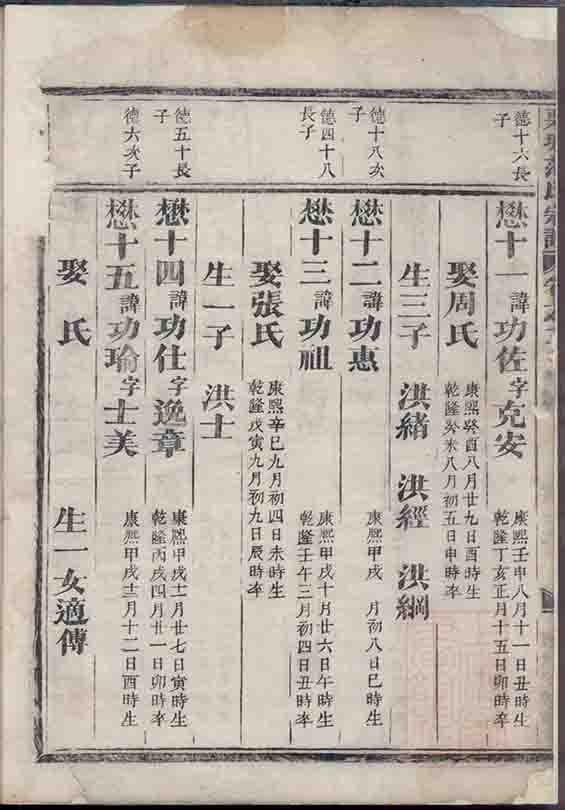 德十六長
子
懋十一諱功佐字克安
康熙壬申八月十一日丑時生
乾隆丁亥正月十五日卯時卒
娶周氏
康熙癸酉八月廿九日酉時生
乾隆癸未八月初五日申時卒
生三子 洪緒 洪經 洪綱
德十八次
子
懋十二諱功惠
康熙甲戌 月初八日巳時生
德四十八
長子
懋十三諱功祖
康熙甲戌十月廿六日午時生
乾隆壬午三月初四日丑時卒
娶張氏
康熙辛巳九月初四日未時生
乾隆戊寅九月初九日辰時卒
生一子 洪士
德五十長
子
懋十四諱功仕字逸章
康熙甲戌十一月廿七日寅時生
乾隆丙戌四月廿一日卯時卒
德六次子
懋十五諱功瑜字士美
康熙甲戌十二月十二日酉時生
娶 氏
生一女適傳